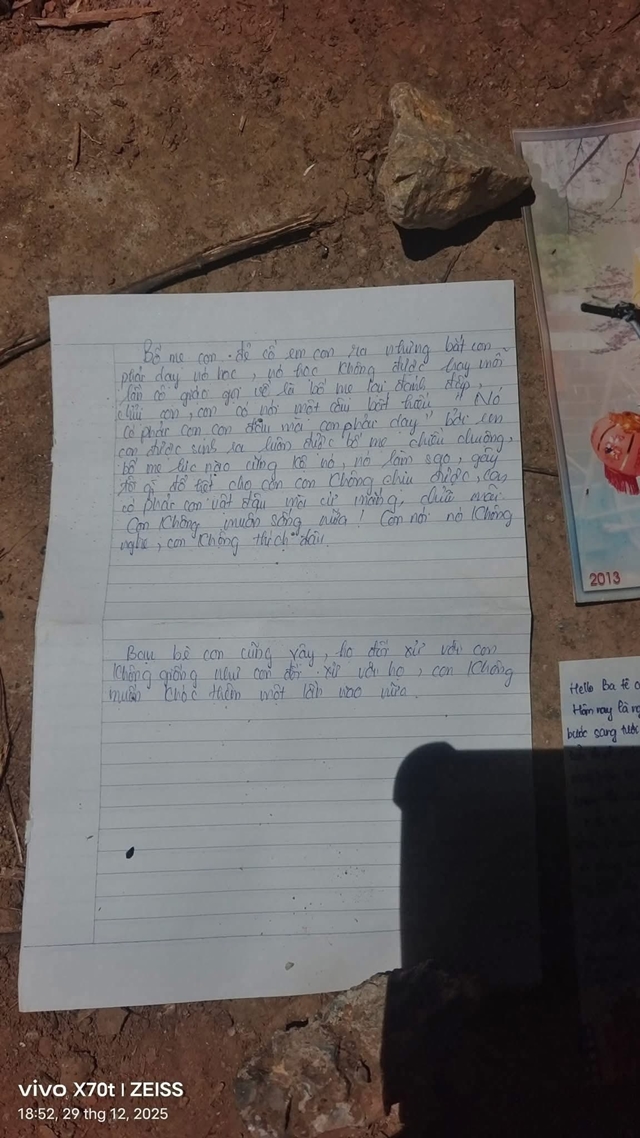 Bố mẹ con đẻ cô em con ra nhưng bắt con
phải dạy nó học, nó học không được hay mỗi
lần cô giáo gọi về là bố mẹ lại đánh đập,
chửi con, con có nói một câu bất hiếu "Nó
có phải con con đâu mà con phải dạy" bởi em
con được sinh ra luôn được bố mẹ chiều chuộng,
bố mẹ lúc nào cũng kệ nó, nó làm sao, gây
gì để tội cho con con không chịu được, con
có phải con vật đâu mà cứ mắng, chửi mãi.
Con không muốn sống nữa! Con nói nó không
nghe, con không thích đâu.
Bạn bè con cũng vậy, họ đối xử với con
không giống như con đối xử với họ, con không
muốn khóc thêm một lần nào nữa.
2013
Hello Ba
Hôm nay là
bước sang tuổi
vivo X70t | ZEISS
18:52, 29 thg 12, 2025